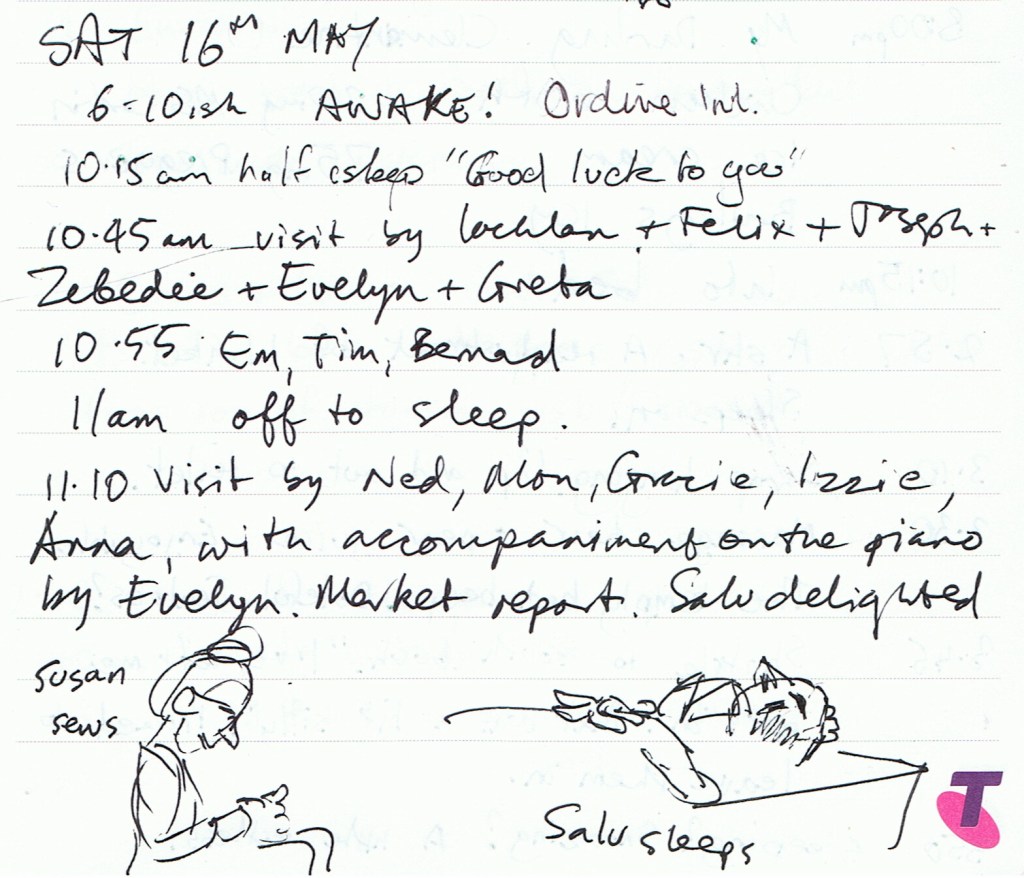 SAT 16TH MAY
6-10ish AWAKE! Ordine Inl.
10.15am half asleep "Good luck to you"
10.45am visit by Lochlan + Felix + Joseph +
Zebedee + Evelyn + Greta
10.55 Em, Tim, Bernard
11am off to sleep.
11.10 Visit by Ned, Mon, Gracie, Izzie,
Anna, with accompaniment on the piano
by Evelyn. Market report. Salv delighted
susan
sews
Salv sleeps
T